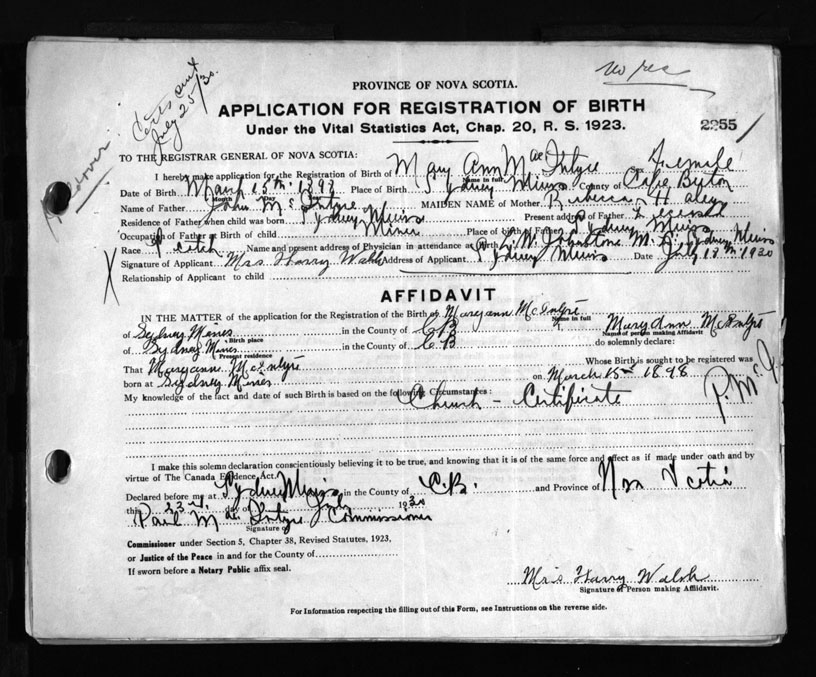 no fee
Certs sent
July 25/30.
over
PROVINCE OF NOVA SCOTIA.
APPLICATION FOR REGISTRATION OF BIRTH
Under the Vital Statistics Act, Chap. 20, R. S. 1923.
2255
TO THE REGISTRAR GENERAL OF NOVA SCOTIA:
I hereby make application for the Registration of Birth of Mary Ann Mac Intyre Female
Name in full
Date of Birth March 15th 1898 Place of Birth Sydney Mines County of Cape Breton
Month Day
Name of Father John Mc Intyre MAIDEN NAME of Mother Rebecca Haley
Residence of Father when child was born Sydney Mines Present address of Father Deceased
Occupation of Father at Birth of child Miner Place of birth of Father Sydney Mines
Race Scotch Name and present address of Physician in attendance at Birth W. Johnstone M.D. Sydney Mines
Signature of Applicant Mrs. Harry Walsh Address of Applicant Sydney Mines Date July 18th 1930
Relationship of Applicant to child
AFFIDAVIT
IN THE MATTER of the application for the Registration of the Birth of Maryann McIntyre
Name in full
of Sydney Mines in the County of C B Mary Ann McIntyre
Birth place Name of person making Affidavit
of Sydney Mines in the County of C B do solemnly declare:
Present residence
That Maryann McIntyre Whose Birth is sought to be registered was
born at Sydney Mines on March 15th 1898
My knowledge of the fact and date of such Birth is based on the following Circumstances:
Church - Certificate
P. Mc I
I make this solemn declaration conscientiously believing it to be true, and knowing that it is of the same force and effect as if made under oath and by
virtue of The Canada Evidence Act.
Declared before my at Sydney Mines in the County of C.B. and Province of Nova Scotia
this 23rd day of July 1930
Paul Mac Intyre Commissioner
Signature of
Commissioner under Section 5, Chapter 38, Revised Statutes, 1923,
or Justice of the Peace in and for the County of
If sworn before a Notary Public affix seal.
Mrs Harry Walsh
Signature of Person making Affidavit.
For Information respecting the filling out of this Form, see Instructions on the reverse side.